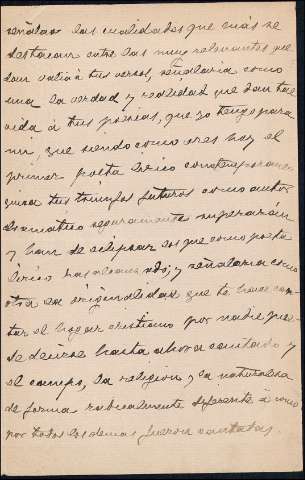 señalar las cualidades que más se
destacan entre las muy relevantes que
dan valía á tus versos, señalaría como
una la verdad y realidad que dan tan
vida á tus poesías, que yo tengo para
mi, que siendo como eres hoy el
primer poeta lírico contemporaneo
quizá tus triunfos futuros como autor
dramatico seguramente superarán
y han de eclipsar los que como poeta
lírico has alcanzado; y señalaria como
otra esa originalidad que te hace can-
tar el hogar cristiano por nadie pue-
de decirse hasta ahora cantado y
el campo, la religion y la naturaleza
de forma radicalmente diferente á como
por todos los demas fueron cantadas.